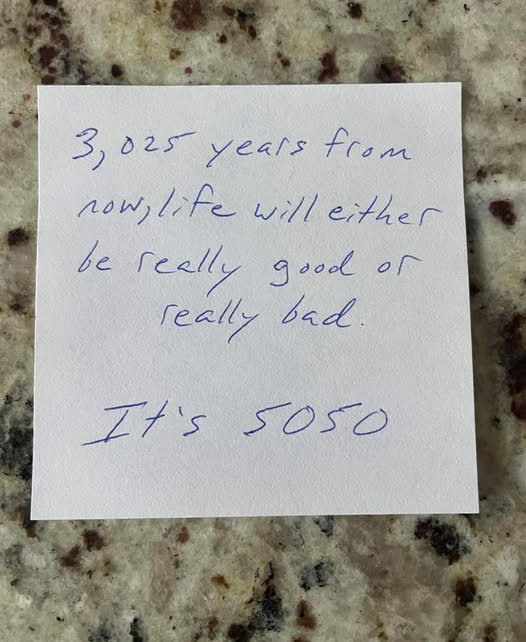 3,025 years from
now, life will either
be really good or
really bad.
It's 5050